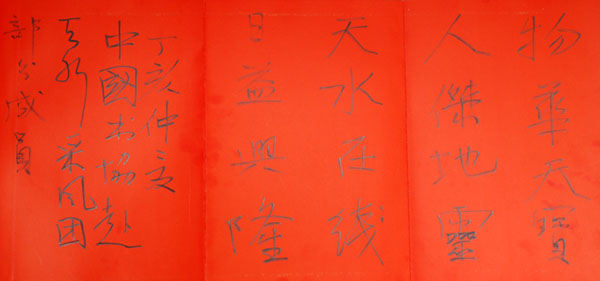 物華天寳
人傑地靈
天水在线
日益興隆
丁亥仲夏
中國书協赴
天水采风团
部分成員